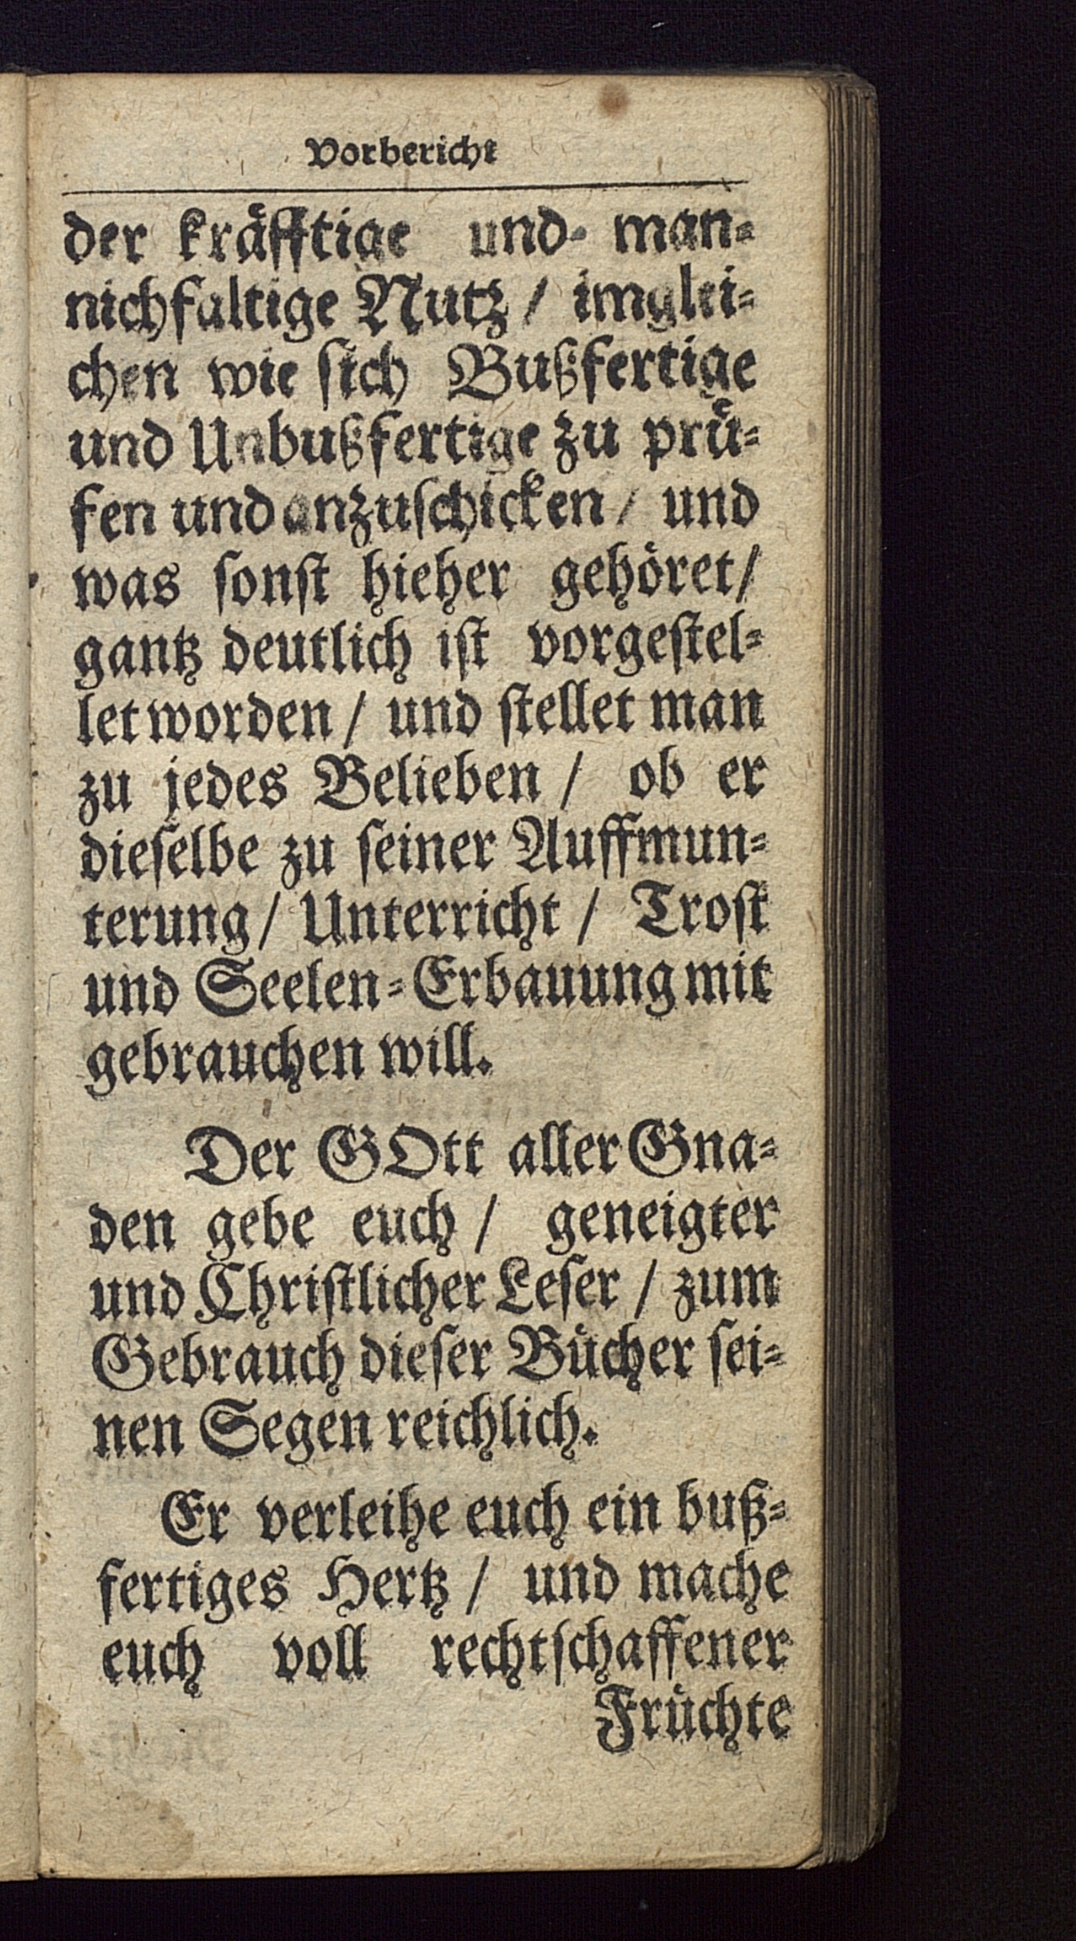 Vorbericht
der kräfftige und- man-
nichfaltige Nutz / imglei-
chen wie sich Bußfertige
und Unbußfertige zu prü-
fen und anzuschicken / und
was sonst hieher gehöret /
gantz deutlich ist vorgestel-
let worden / und stellet man
zu jedes Belieben / ob er
dieselbe zu seiner Auffmun-
terung / Unterricht / Trost
und Seelen-Erbauung mit
gebrauchen will.
Der GOtt aller Gna-
den gebe euch / geneigter
und Christlicher Leser / zum
Gebrauch dieser Bücher sei-
nen Segen reichlich.
Er verleihe euch ein buß-
fertiges Hertz / und mache
euch voll rechtschaffener
Früchte